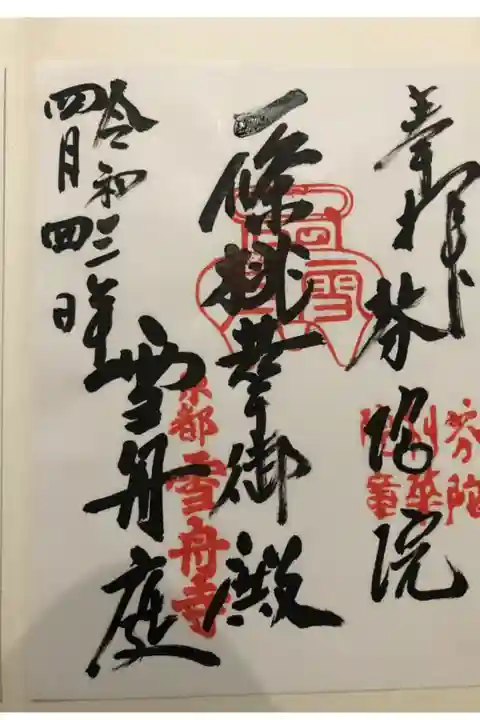 奉拝 芬陀院
芬陀
利華
院章
一條桃華御殿
雪舟庭
京都 雪舟寺
令和三年
四月四日